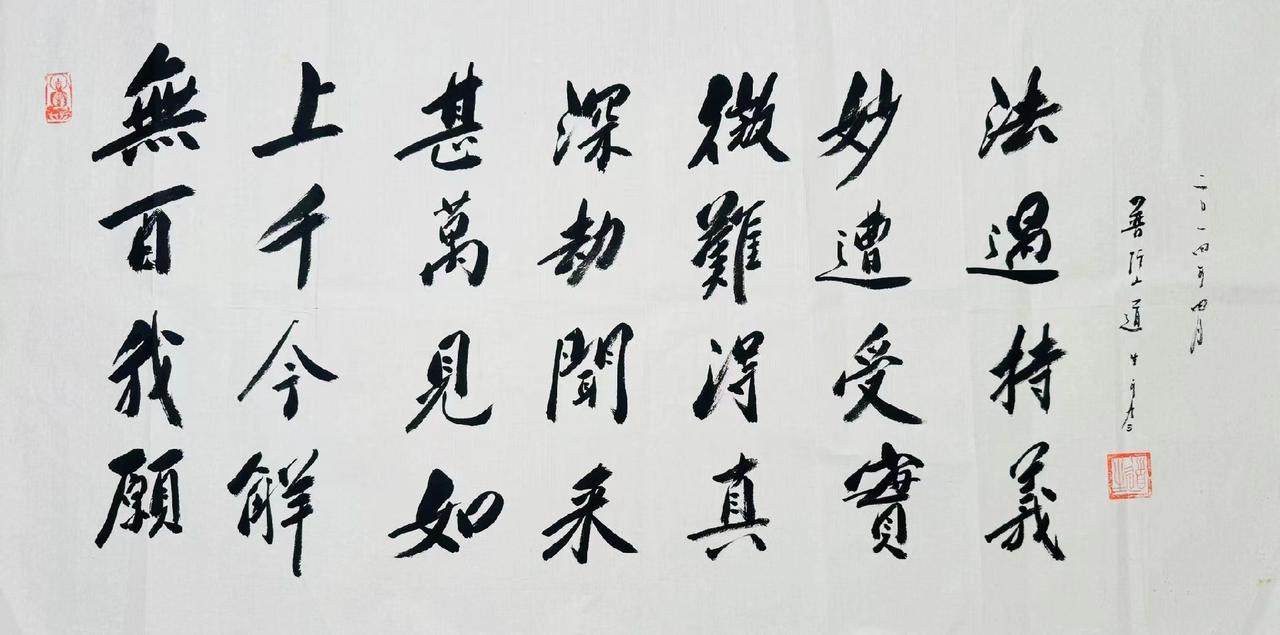 無上甚深微妙法
百千萬劫難遭遇
我今見聞得受持
願解如来真實義
二〇一四年四月